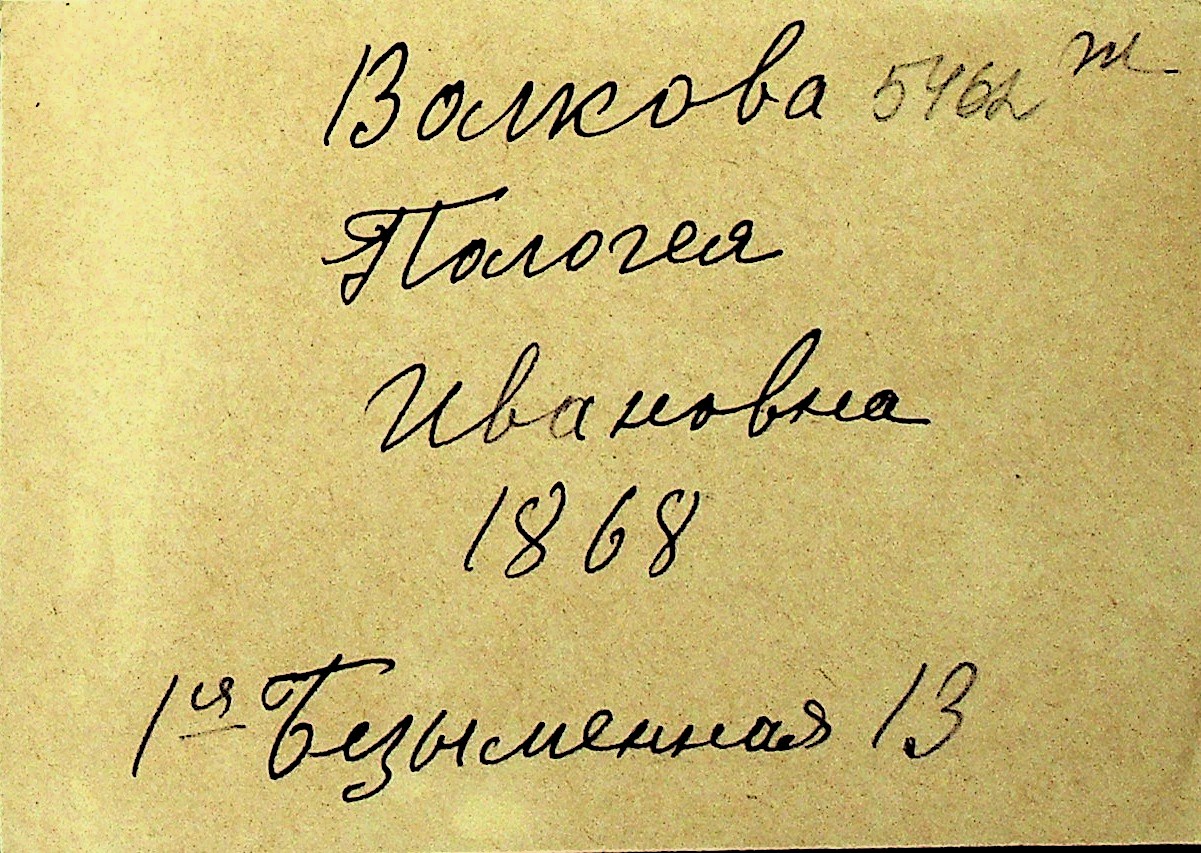 Волкова 5462 ж
Пологея
Ивановна
1868
1ая Безыменная 13